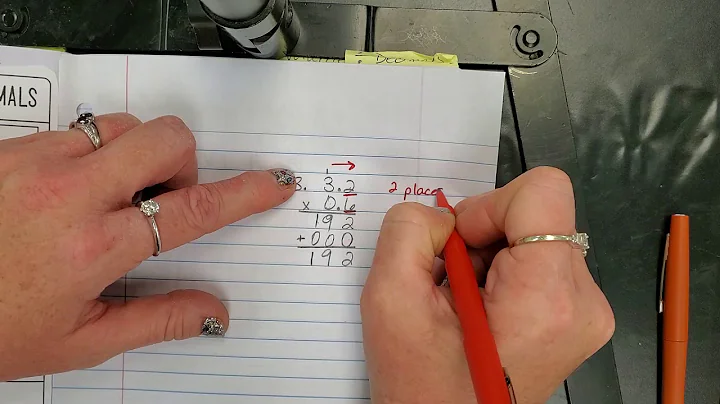 Decimals
MALS
1 →
3. 3.2 2 place
x 0.6
192
+ 000
192